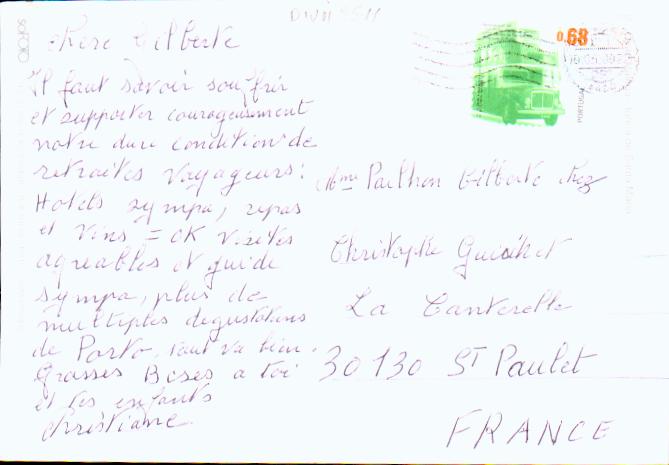 Chère Gilberte
Il faut savoir souffrir
et supporter courageusement
notre dure condition de
retraités voyageurs :
Hotels sympa, repas
et vins = OK visites
agreables et guide
sympa, plus de
multiples degustations
de Porto. Tout va bien.
Grosses Bises a toi
et tes enfants
Christiane.
0,68
PORTUGAL
Mme Gilberte chez
Christophe
La Canterelle
30130 ST Paulet
FRANCE